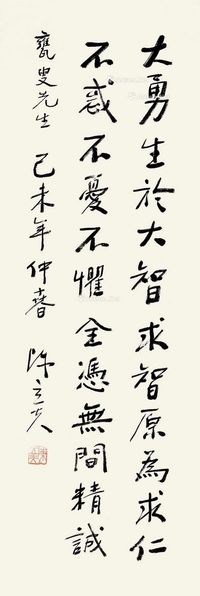 大勇生於大智求智原為求仁
不惑不憂不懼全憑無間精誠
甕叟先生 己未年仲春 陳立夫